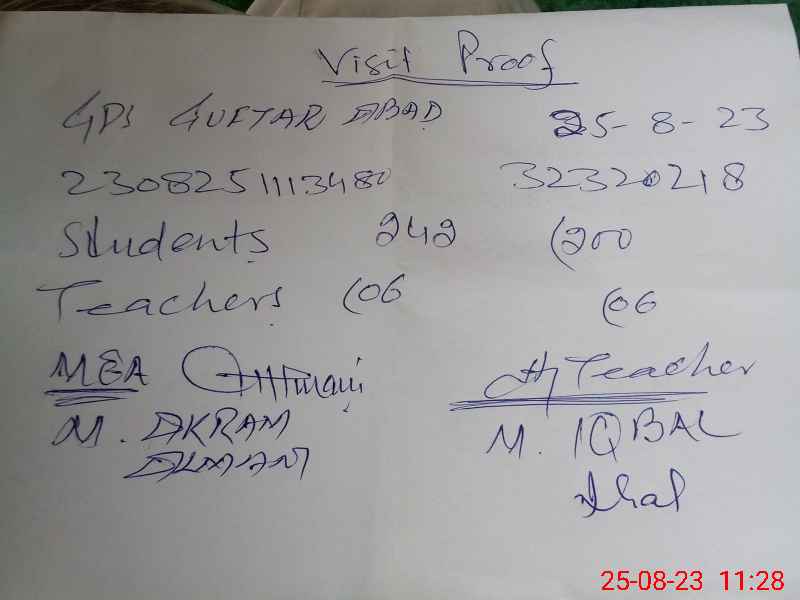 Visit Proof
GPS GUFTAR ABAD 25-8-23
2308251113480 32320218
Students 242 (200
Teachers (06 (06
MEA
H/Teacher
M. AKRAM
M. IQBAL
25-08-23 11:28